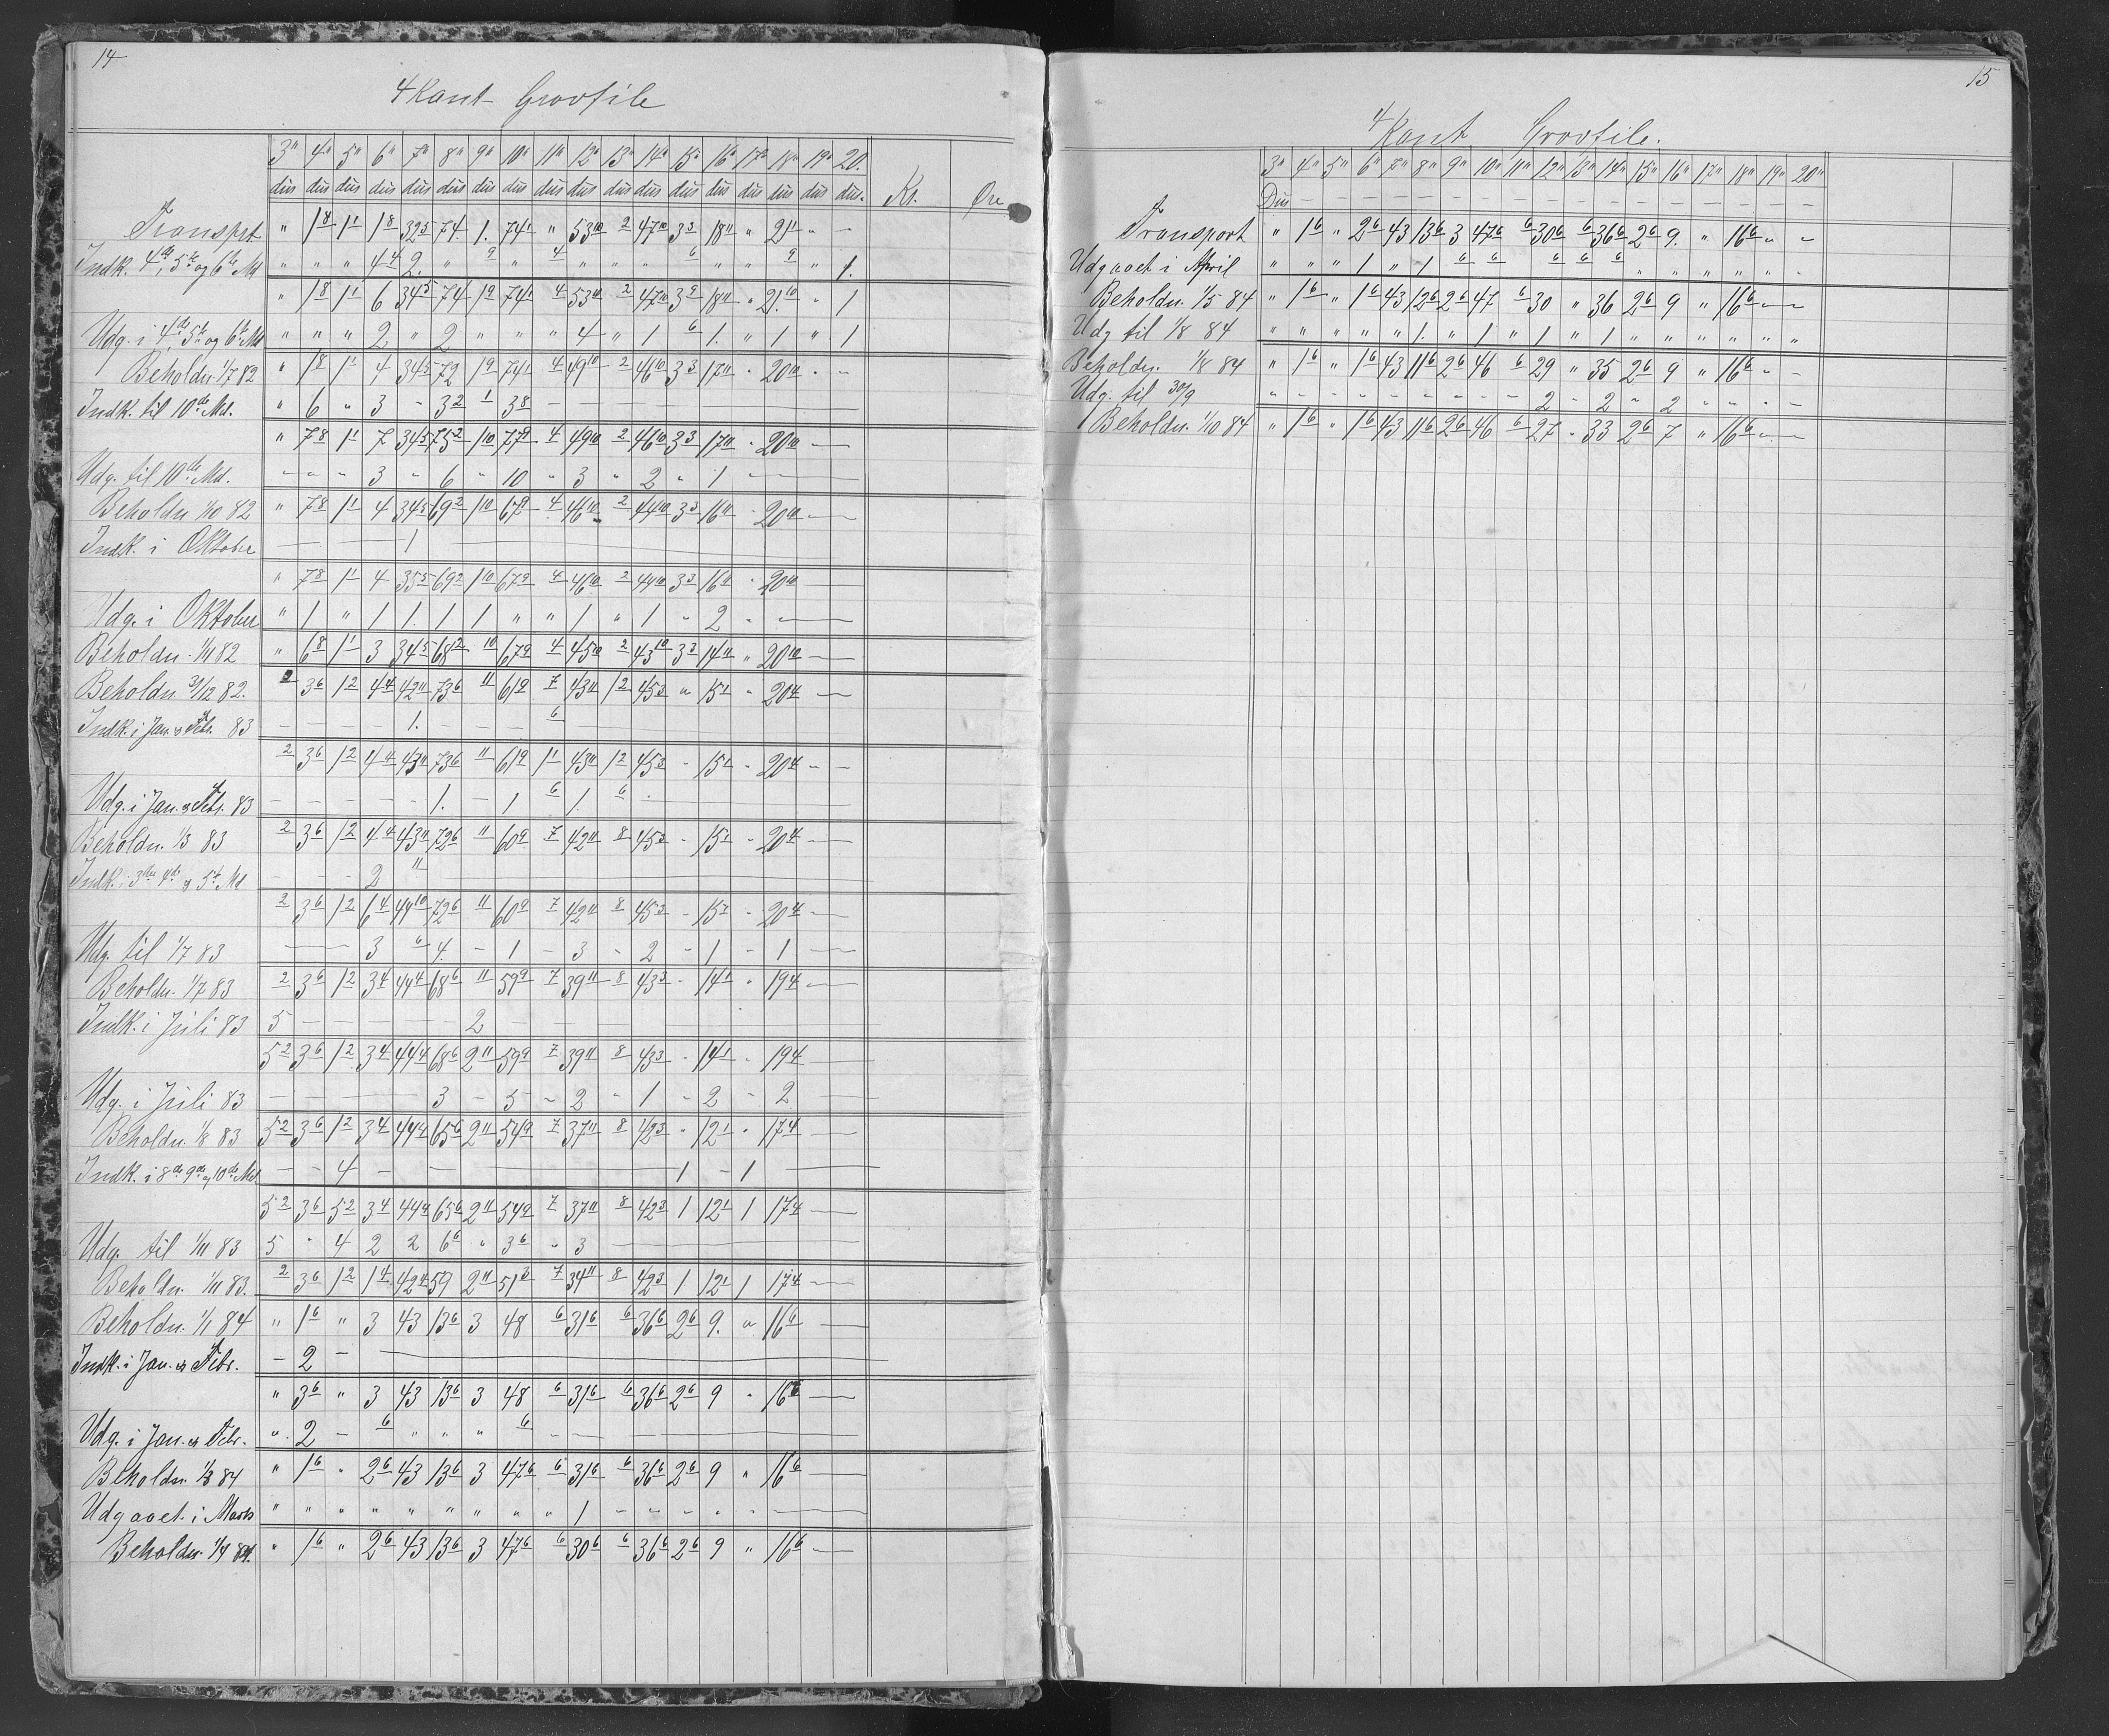 14
4 Kant Grovfile
3" 4" 5" 6" 7" 8" 9" 10" 11" 12" 13" 14" 15" 16" 17" 18" 19" 20.
dus dus dus dus dus dus dus dus dus dus dus dus dus dus dus dus dus dus. Kr. Øre
Transprt " 1 8 1 1 1 8 32 5 74. 1. 74 1 " 53 10 2 47 10 3 3 18 11 " 21 1 " –
Indk. 4de, 5te og 6te Md " " " 4 4 2. " 9 " 4 " " " 6 " " 9 " 1.
" 1 8 1 1 6 34 5 74 1 9 74 1 4 53 10 2 47 10 3 9 18 11 " 21 10 " 1
Udg. i 4de 5te og 6te Md " " " 2 " 2 " " " 4 " 1 6 1. " 1 " 1
Beholdn. 1/7 82 " 1 8 1 1 4 34 5 72 1 9 74 1 4 49 10 2 46 10 3 3 17 11 " 20 10 " "
Indk. til 10de Md. " 6 " 3 - 3 2 1 3 8 — — —
" 7 8 1 1 7 34 5 75 2 1 10 77 9 4 49 10 2 46 10 3 3 17 11 " 20 10 —
Udg. til 10de Md. " " " 3 " 6 " 10 " 3 " 2 " 1 " — —
Beholdn 1/10 82 " 7 8 1 1 4 34 5 69 2 1 10 67 9 4 46 10 2 44 10 3 3 16 11 " 20 10 —
Indk. i Oktober — — 1 —
" 7 8 1 1 4 35 5 69 2 1 10 67 9 4 46 10 2 44 10 3 3 16 11 " 20 10 —
Udg. i Oktober " 1 " 1 1. 1 1 " " 1 " 1 " 2 " " —
Beholdn. 1/11 82 " 6 8 1 1 3 34 5 68 2 10 67 9 4 45 10 2 43 10 3 3 14 11 " 20 10 —
Beholdn 31/12 82. 2 3 6 1 2 4 4 42 11 73 6 11 61 9 7 43 11 1 2 45 3 " 15 1 " 20 4 —
Indk. i Jan. & Febr. 83 — — — — 1. — — — 6
2 3 6 1 2 4 4 43 11 73 6 11 61 9 1 1 43 11 1 2 45 3 - 15 1 - 20 4 - -
Udg. i Jan. & Febr. 83 — — — — — 1. — 1 6 1. 6 .
Beholdn. 1/3 83 2 3 6 1 2 4 4 43 11 72 6 11 60 9 7 42 11 8 45 3 - 15 1 - 20 4 —
Indk. i 3die 4de & 5te Md — — — 2 11 —
2 3 6 1 2 6 4 44 10 72 6 11 60 9 7 42 11 8 45 3 - 15 1 - 20 4 —
Udg. til 1/7 83 — — 3 6 4. - 1 - 3 - 2 - 1 - 1 —
Beholdn. 1/7 83 2 3 6 1 2 3 4 44 4 68 6 11 59 9 7 39 11 8 43 3 - 14 1 " 19 4 —
Indk. i Juli 83 5 — — — — — 2 —
5 2 3 6 1 2 3 4 44 4 68 6 2 11 59 9 7 39 11 8 43 3 - 14 1 - 19 4 —
Udg. i Juli 83 — — — — — 3 - 5 - 2 - 1 - 2 - 2
Beholdn. 1/8 83 5 2 3 6 1 2 3 4 44 4 65 6 2 11 54 9 7 37 11 8 42 3 " 12 1 " 17 4 —
Indk. i 8de 9de & 10de Md — — 4 — — — 1 - 1 —
5 2 3 6 5 2 3 4 44 4 65 6 2 11 54 9 7 37 11 8 42 3 1 12 1 1 17 4 —
Udg. til 1/11 83 5 " 4 2 2 6 6 " 3 6 " 3 —
Beholdn. 1/11 83. 2 3 6 1 2 1 4 42 4 59 2 11 51 3 7 34 11 8 42 3 1 12 1 1 17 4 —
Beholdn. 1/1 84 " 1 6 " 3 43 13 6 3 48 6 31 6 6 36 6 2 6 9. " 16 6 —
Indk. i Jan. & Febr. — 2 — —
" 3 6 " 3 43 13 6 3 48 6 31 6 6 36 6 2 6 9 " 16 6 —
Udg. i Jan. & Febr. " 2 — 6 " " " 6 — — —
Beholdn. 1/3 84 " 1 6 " 2 6 43 13 6 3 47 6 6 31 6 6 36 6 2 6 9 " 16 6 —
Udgaaet i Marts " " " " " " " " " 1 — — — — —
Beholdn. 1/4 84. " 1 6 " 2 6 43 13 6 3 47 6 6 30 6 6 36 6 2 6 9 " 16 6 —
15
4 Kant Grovfile.
3" 4" 5" 6" 7" 8" 9" 10" 11" 12" 13" 14" 15" 16" 17" 18" 19" 20"
Dus — — — — — — — — — — — — — — — — —
Transport " 1 6 " 2 6 43 13 6 3 47 6 6 30 6 6 36 6 2 6 9. " 16 6 " "
Udgaaet i April " " " 1 " 1 6 6 6 6 6 " " " " " "
Beholdn. 1/5 84 " 1 6 " 1 6 43 12 6 2 6 47 6 30 " 36 2 6 9 " 16 6 — —
Udg til 1/8 84 " " " " " 1. " 1 " 1 " 1 " " " " " "
Beholdn. 1/8 84 " 1 6 " 1 6 43 11 6 2 6 46 6 29 " 35 2 6 9 " 16 6 " –
Udg. til 30/9 " " " " " " " " " 2 " 2 " 2 " " " "
Beholdn. 1/10 84 " 1 6 " 1 6 43 11 6 2 6 46 6 27 " 33 2 6 7 " 16 6 — —